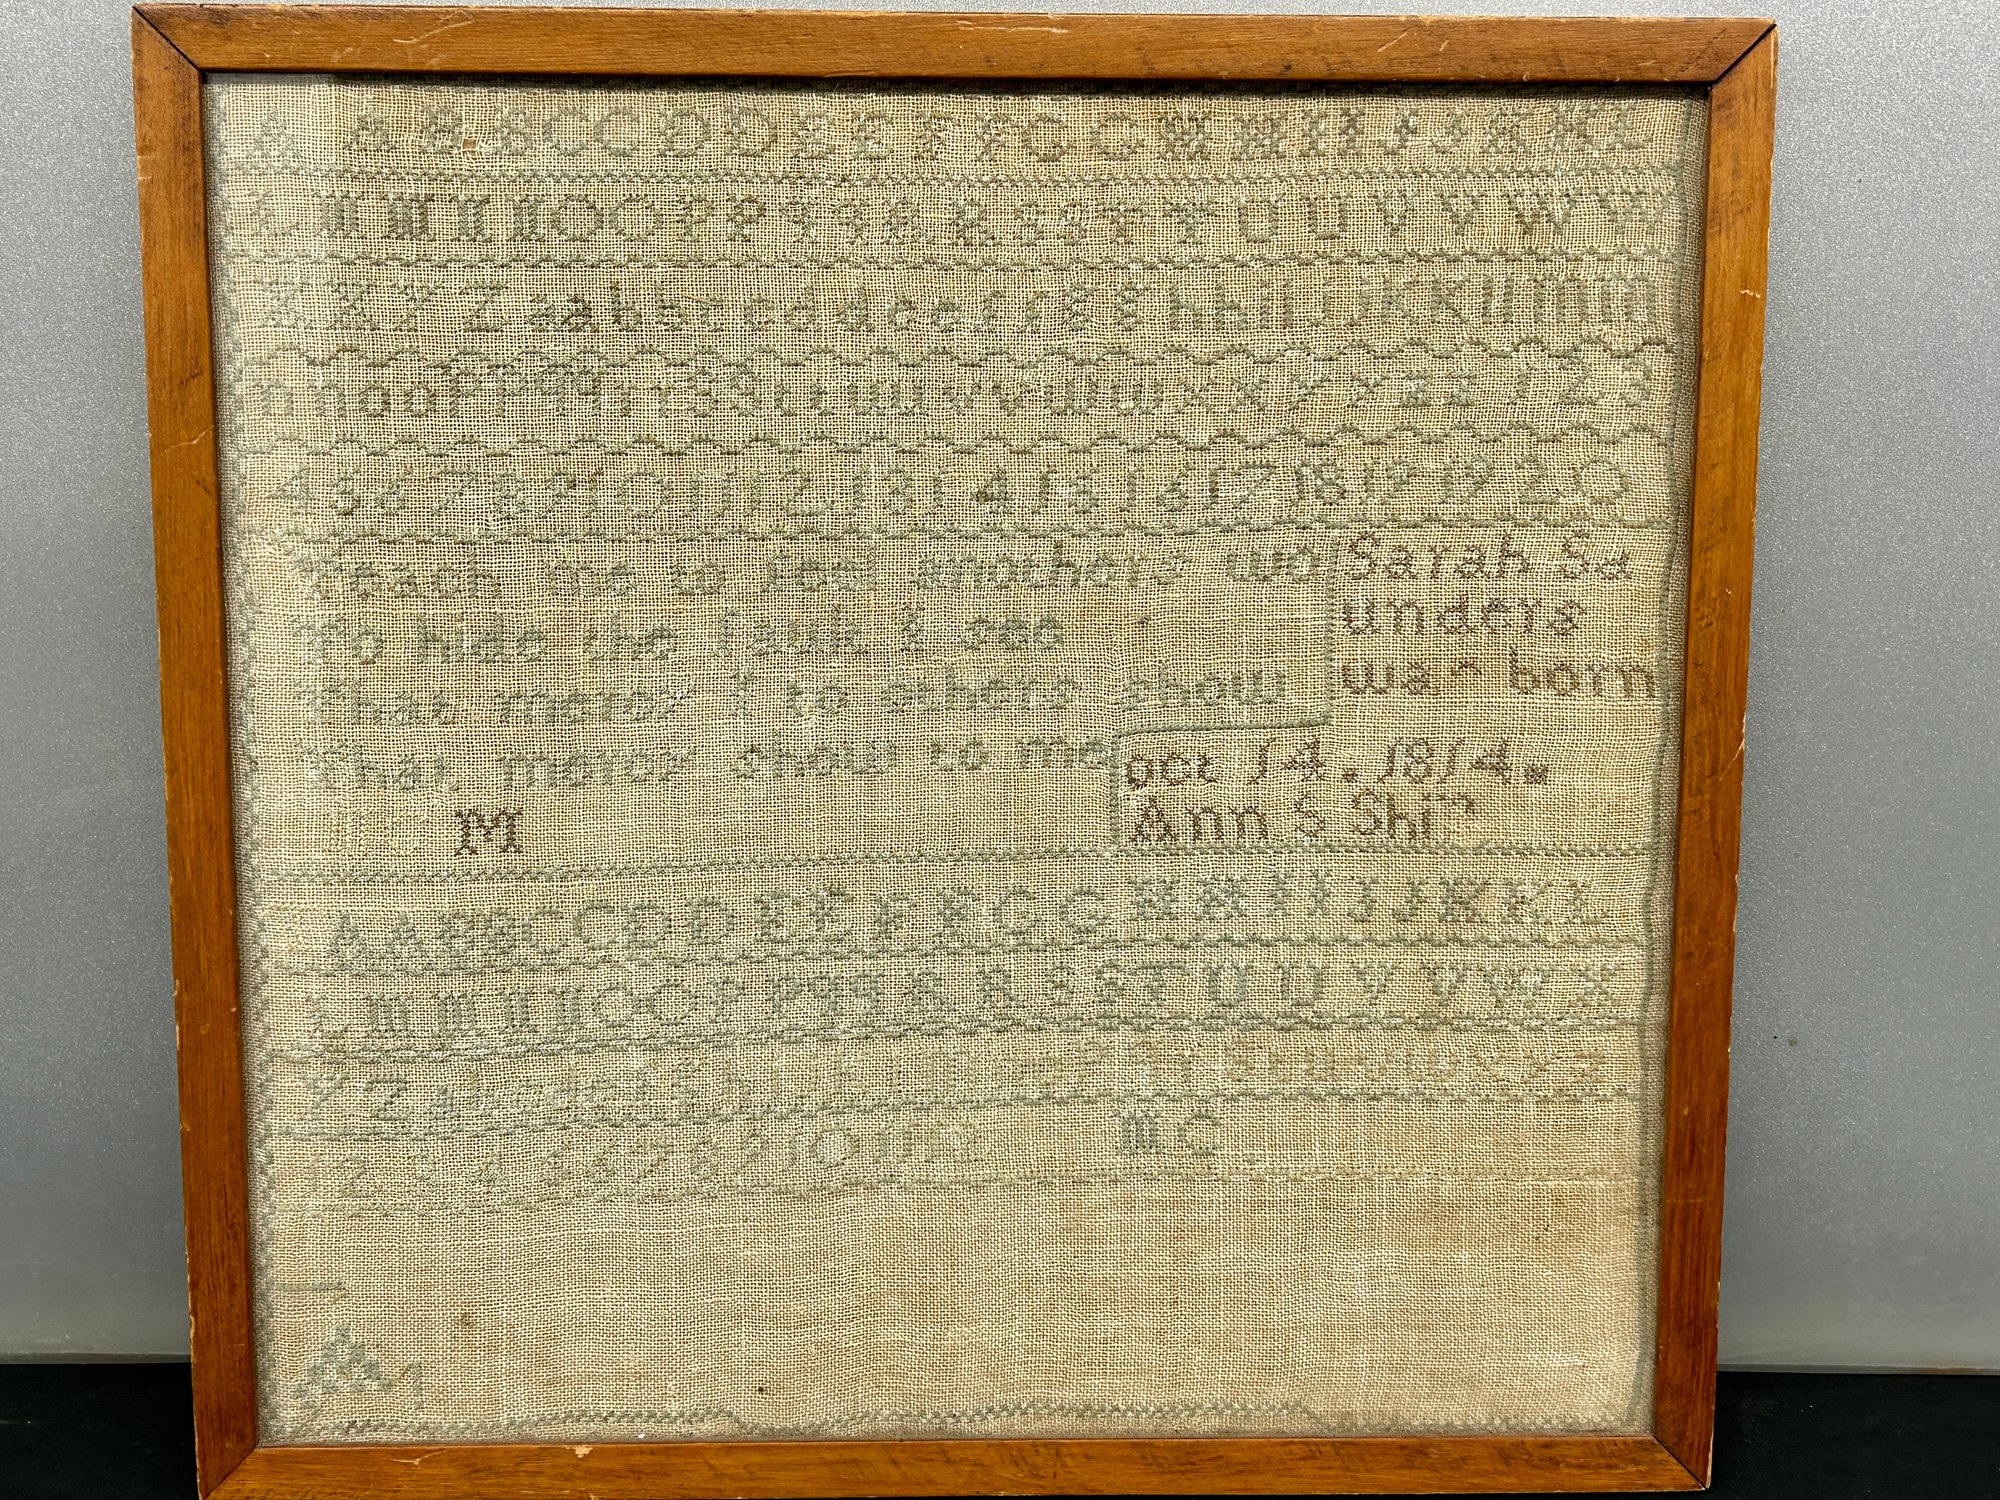 A A B B C C D D E E F F G G H H I I J J K K L
L M M N N O O P P q q R R S S T T U U V V W W
X X Y Z a a b b c c d d e e f f g g h h i i j j k k l l m m
n n o o p p q q r r s s t t u u v v w w x x y y z z 1 2 3
4 5 6 7 8 9 10 11 12 13 14 15 16 17 18 19 19 20
Teach me to feel anothers wo
To hide the fault I see
That mercy I to others show
That mercy show to me
Sarah Sa
unders
was born
oct 14. 1814.
Ann S Shi
M
A A B B C C D D E E F F G G H H I I J J K K L
L M M N N O O P P q q R R S S T U U V V W X
Y Z a b c d e f g h i j k l m n o p q r s t u v w x y z
1 2 3 4 5 6 7 8 9 10 11 12 M C
A